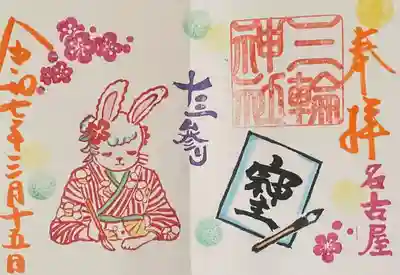 奉拝
名古屋
三輪
神社
十三参り
令和七年三月十五日